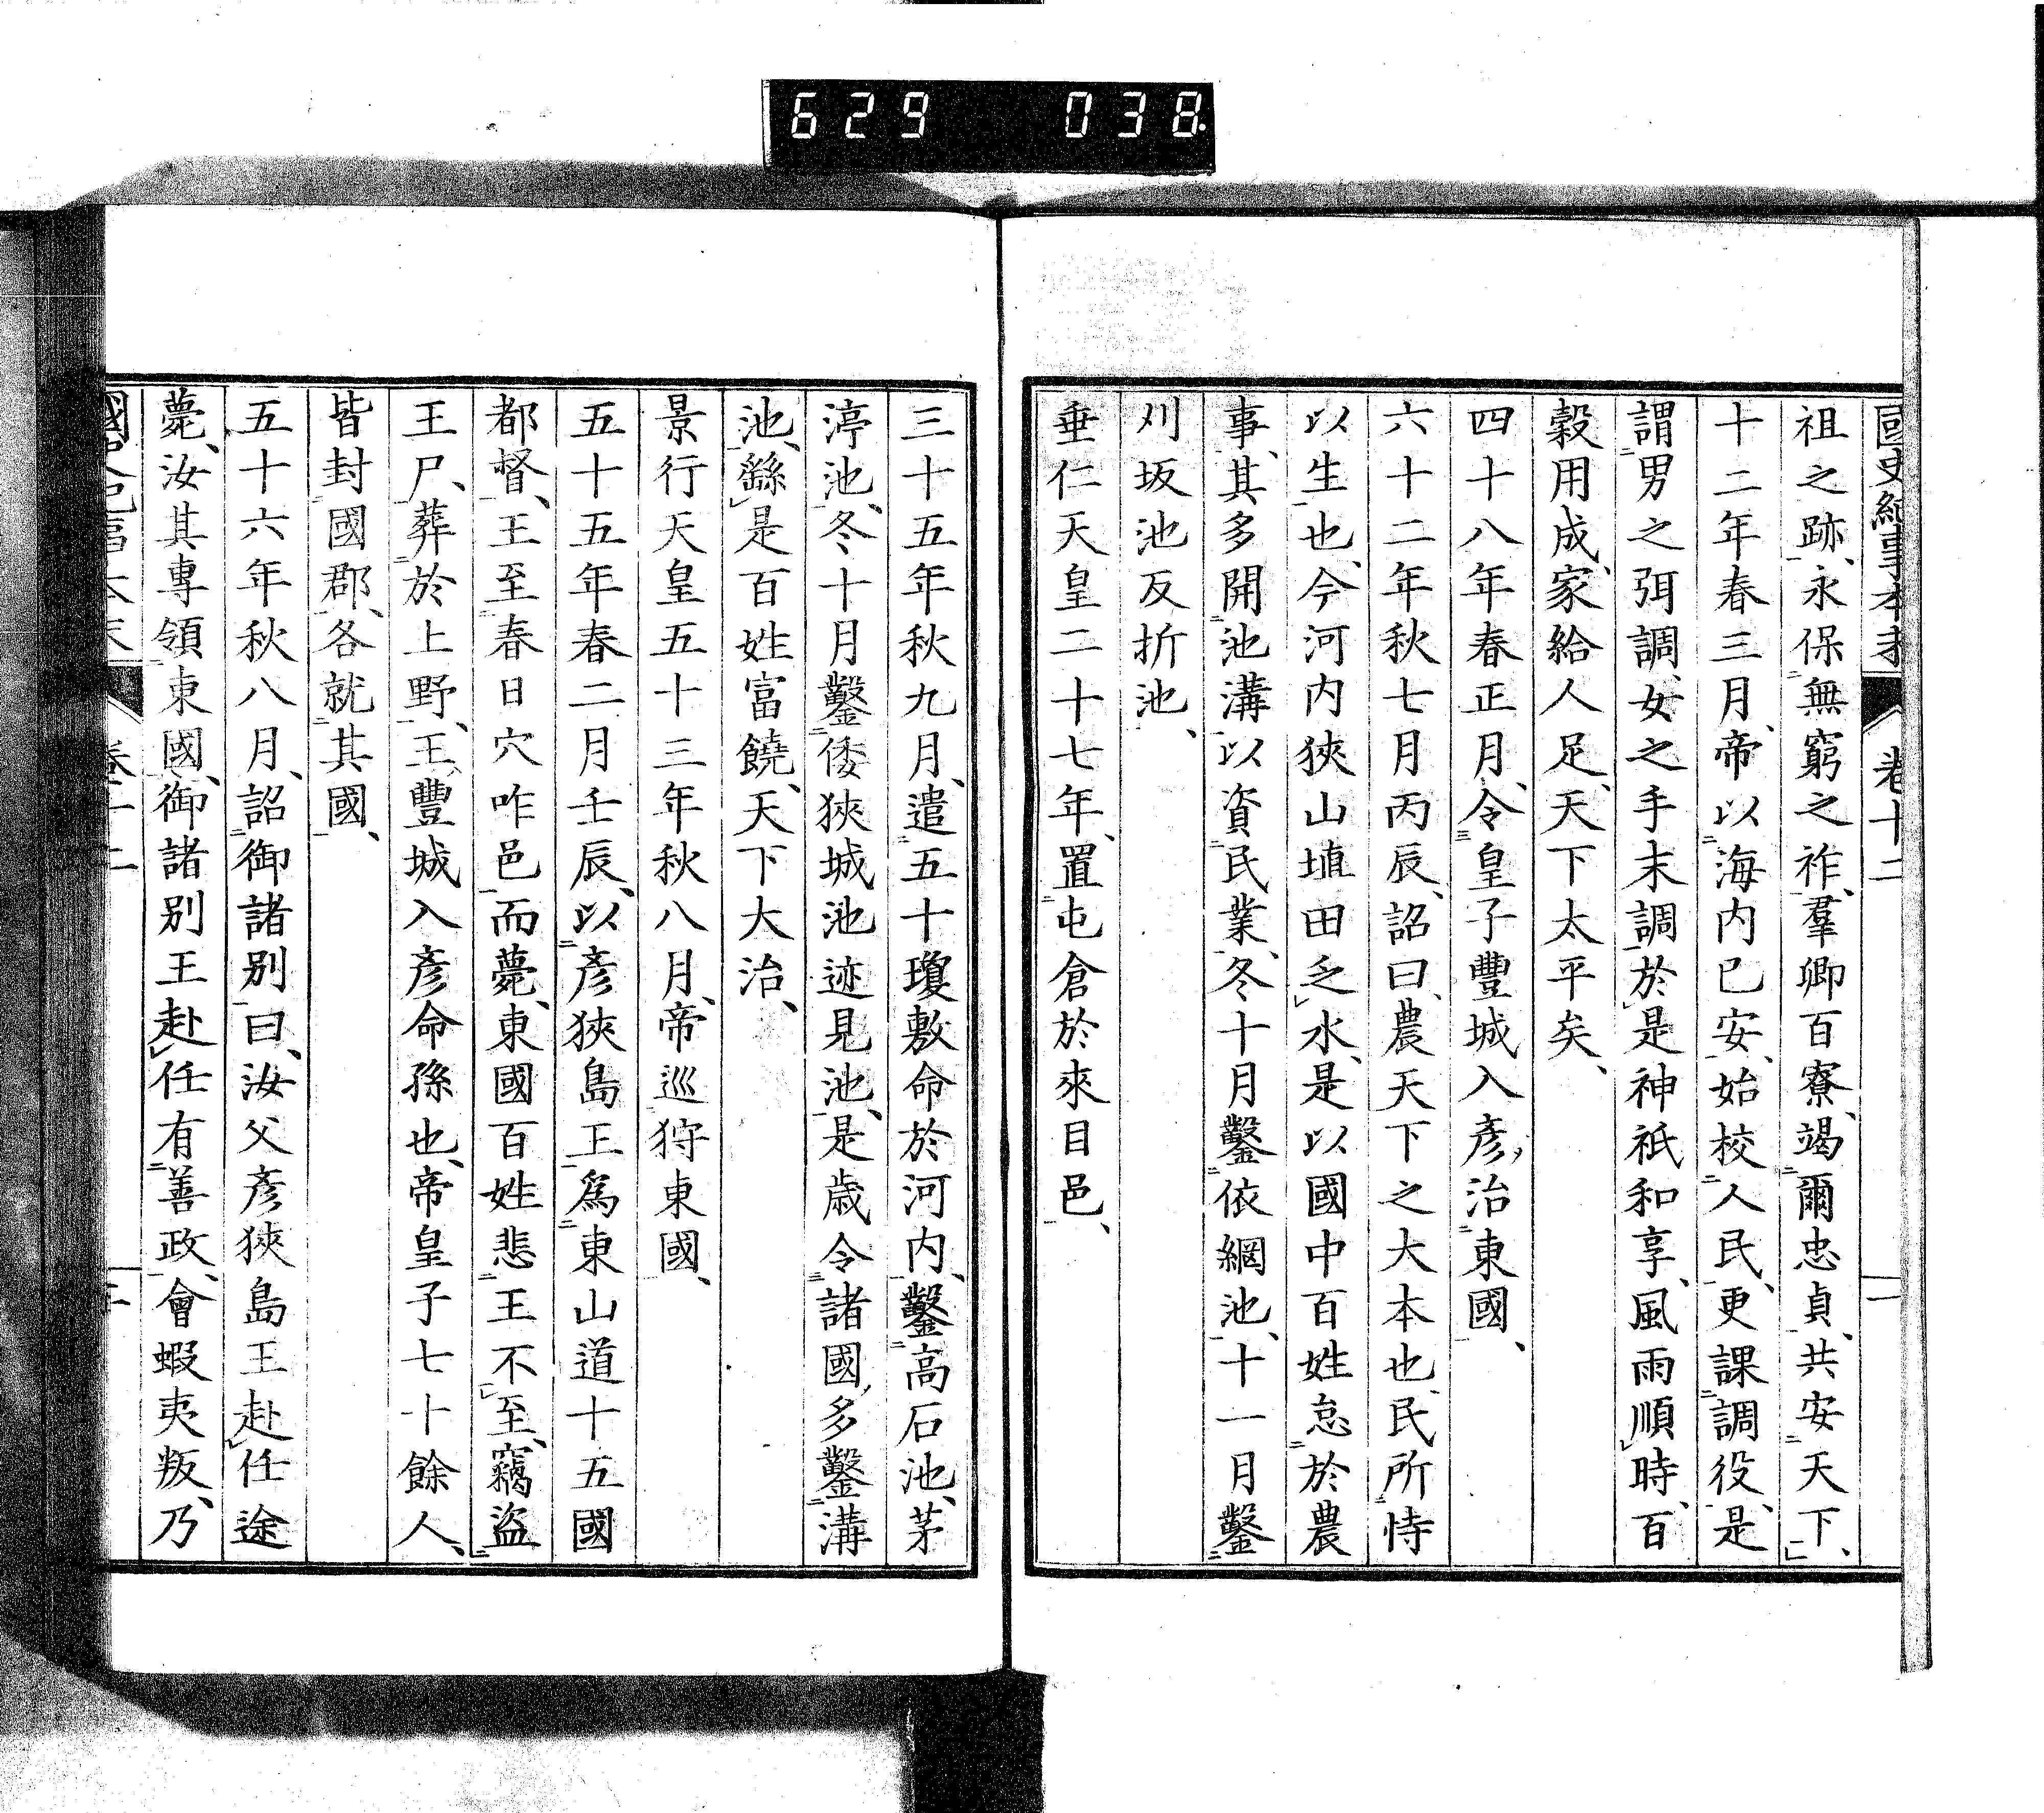 629 038
國史紀事本末 卷十二 二
祖之跡、永保無窮之祚、羣卿百寮、竭爾忠貞、共安天下、
十二年春三月、帝以海内已安、始校人民、更課調役、是
謂男之弭調、女之手末調、於是神祇和享、風雨順時、百
穀用成、家給人足、天下太平矣、
四十八年春正月、令皇子豐城入彥、治東國、
六十二年秋七月丙辰、詔曰、農天下之大本也、民所恃
以生也、今河内狹山埴田乏水、是以國中百姓怠於農
事、其多開池溝以資民業、冬十月鑿依網池、十一月鑿
刈坂池反折池、
垂仁天皇二十七年、置屯倉於來目邑、
三十五年秋九月、遣五十瓊敷命於河内、鑿高石池、茅
渟池、冬十月鑿倭狹城池迹見池、是歲令諸國、多鑿溝
池、繇是百姓富饒、天下大治、
景行天皇五十三年秋八月、帝巡狩東國、
五十五年春二月壬辰、以彥狹島王爲東山道十五國
都督、王至春日穴咋邑而薨、東國百姓悲王不至、竊盜
王尸、葬於上野、王、豐城入彥命孫也、帝皇子七十餘人、
皆封國郡、各就其國、
五十六年秋八月、詔御諸別曰、汝父彥狹島王赴任途
薨、汝其專領東國、御諸別王赴任有善政、會蝦夷叛、乃